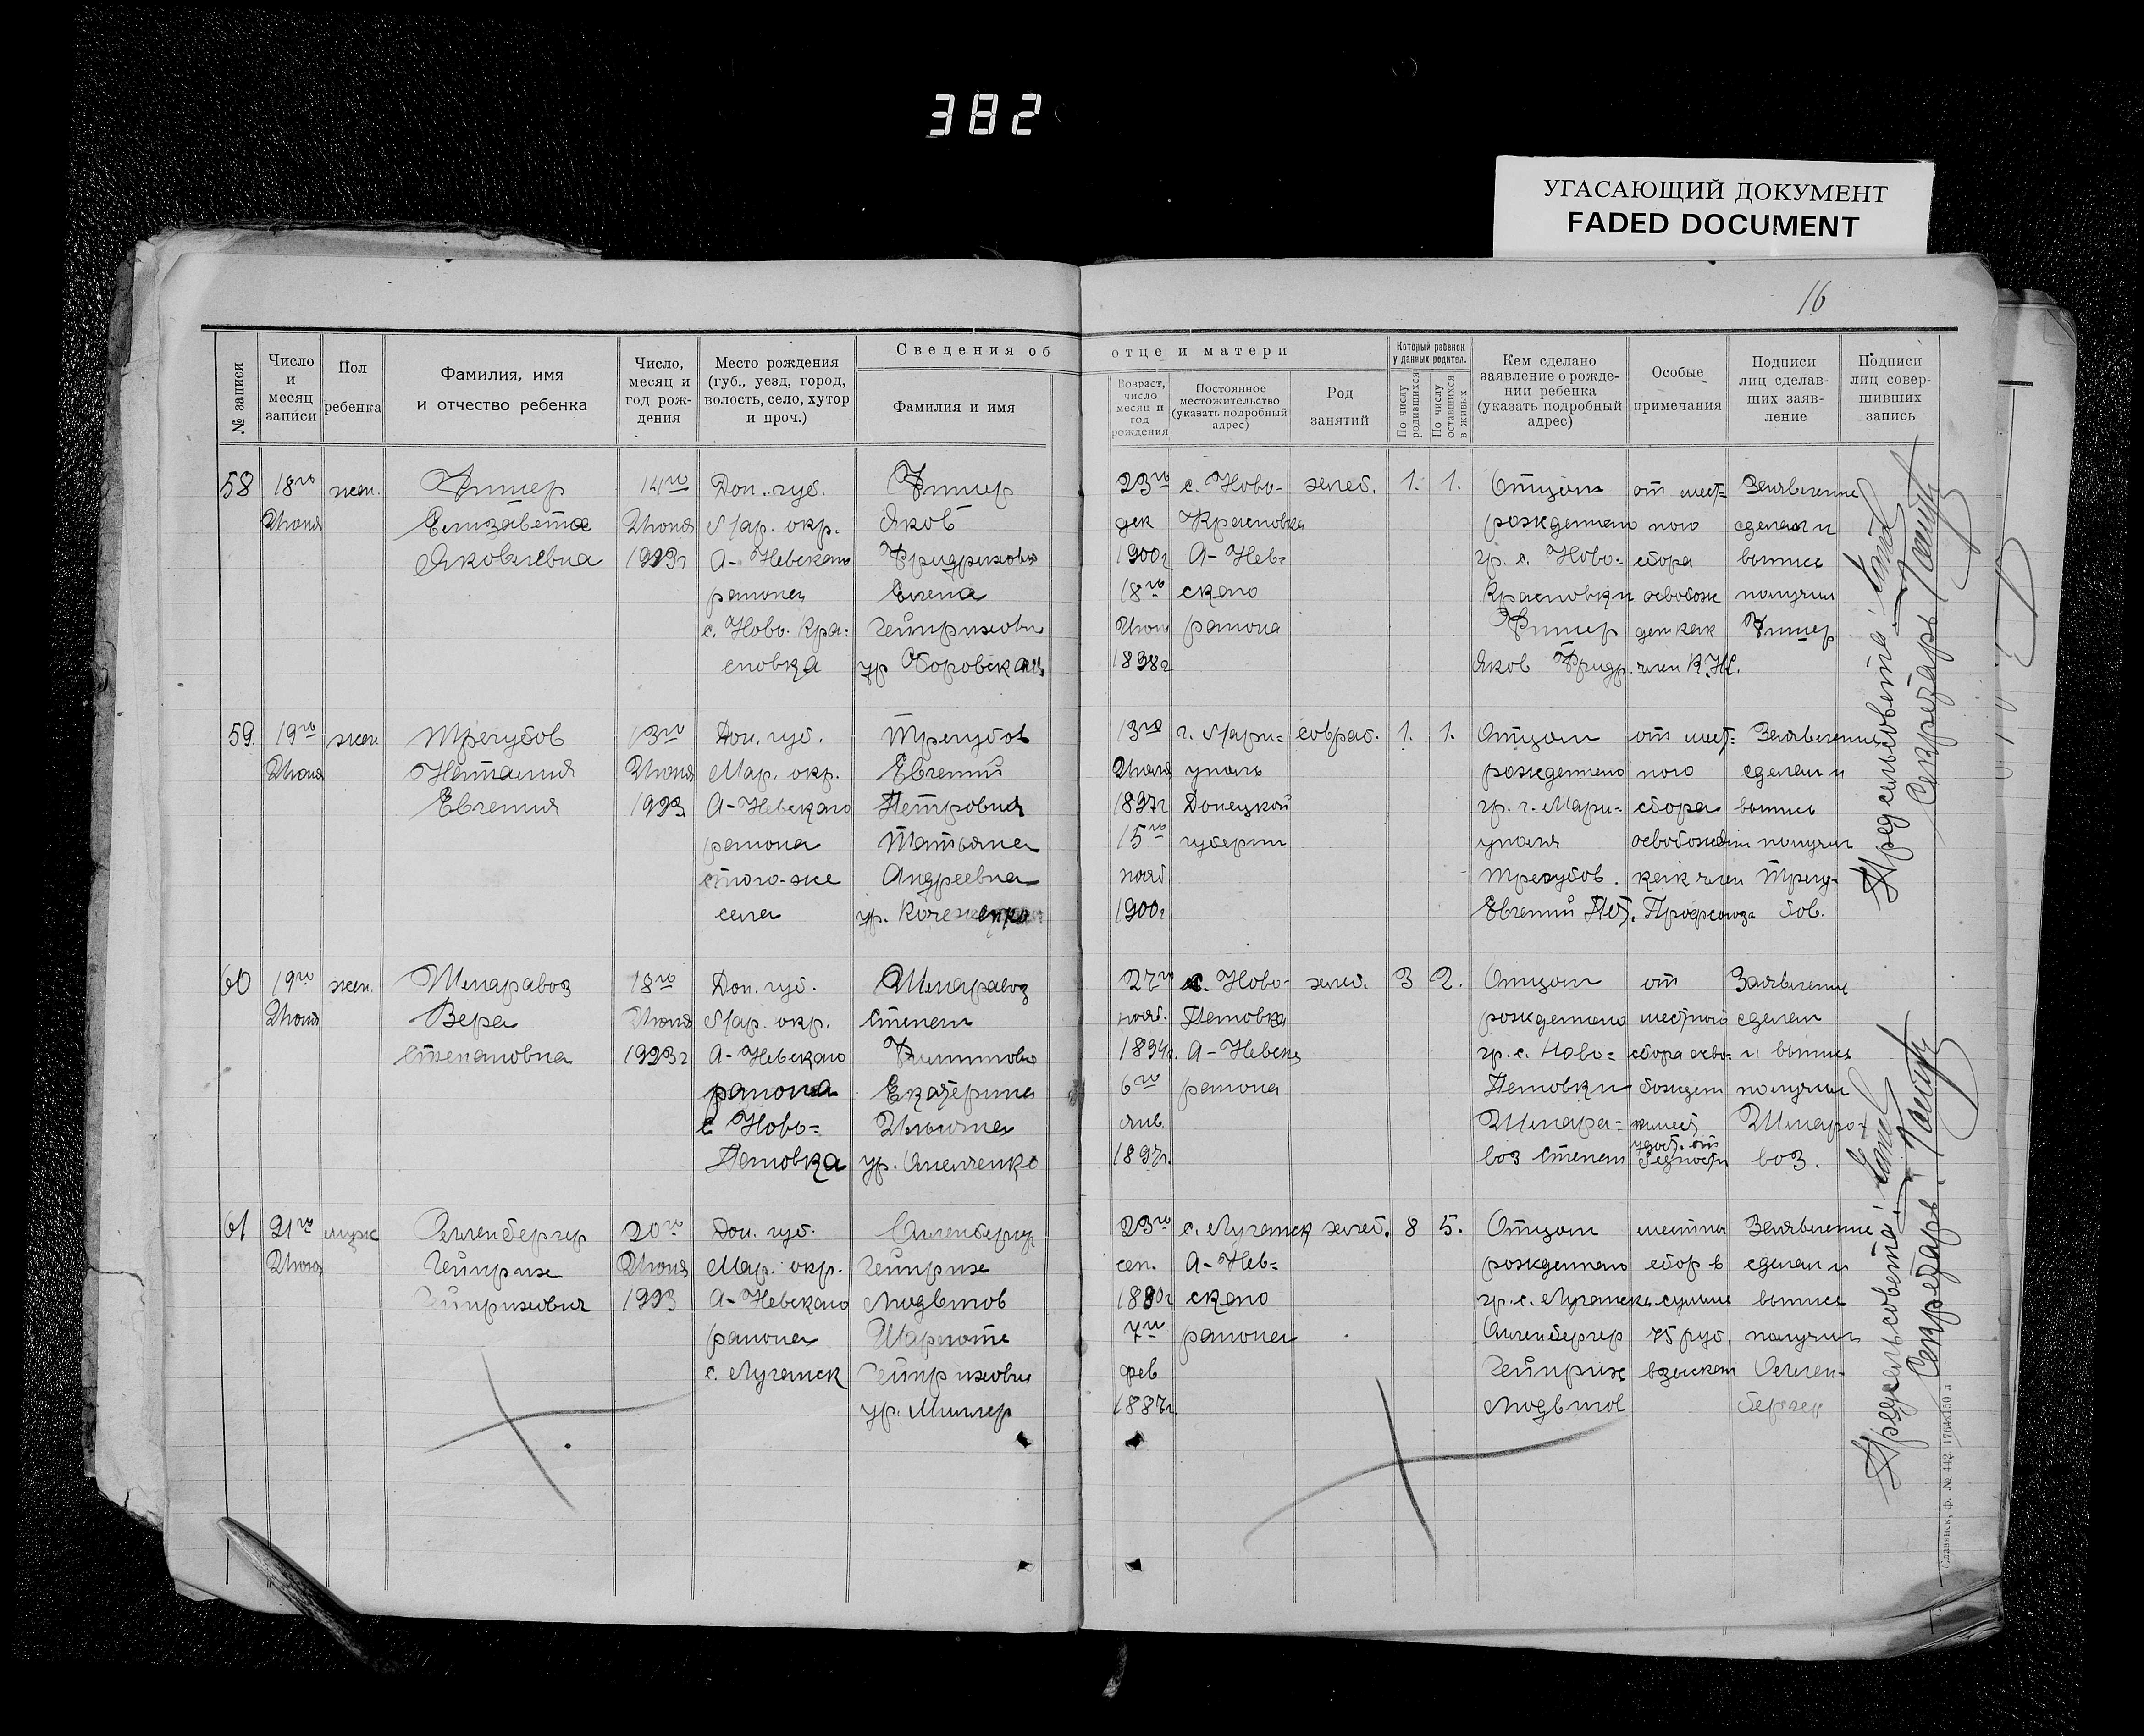 382
УГАСАЮЩИЙ ДОКУМЕНТ
FADED DOCUMENT
16
Сведения об отце и матери
№ записи
Число и месяц записи
Пол ребенка
Фамилия, имя и отчество ребенка
Число, месяц и год рождения
Место рождения (губ., уезд, город, волость, село, хутор и проч.)
Фамилия и имя
Возраст, число месяц и год рождения
Постоянное местожительство (указать подробный адрес)
Род занятий
Который ребенок у данных родител.
По числу родившихся
По числу оставшихся в живых
Кем сделано заявление о рождении ребенка (указать подробный адрес)
Особые примечания
Подписи лиц сделавших заявление
Подписи лиц совершивших запись
58 18го жен. Фишер 14го Дон. губ. Фишер 23го с. Ново- хлеб. 1. 1. Отцом от мест= Заявление
Июня Елизавета Июня Мар. окр. Яков дек Красновка рожденного ного сделал и
Яковлевна 1923г А-Невского Фридрихов 1900г А-Нев= гр. с. Ново= сбора выпись
района Елена 18го ского Красновки освобож получил
с. Ново. Кра= Гейнрихов Июн района Фишер ден как Фишер
сновка ур Боровская 1898г Яков Фридр. член К.Н.С.
59. 19го жен Трегубов 13го Дон. губ. Трегубов 13го г. Мари= совраб. 1. 1. Отцом от мест= Заявление
Июня Наталия Июня Мар. окр. Евгений Июня уполь рожденного ного сделал и
Евгения 1923 А-Невского Петровия 1897г Донецкой гр. г. Мари= сбора выпись
района Татьяна 15го губерни уполя освобожден получил
стого-же Андреевна нояб. Трегубов. как член Трегу-
села ур. 1900г Евгений Пет. Профсоюза бов.
60 19го жен. Шпаравоз 18го Дон. губ. Шпаравоз 27го с. Ново- хлеб. 3 2. Отцом от Заявление
Июня Вера Июня Мар. окр. Степан нояб. Петовка рожденного местного сделал
Степановна 1923г А-Невского Филиппов 1894г. А-Невск гр. с. Ново= сбора осво= и выпись
района Екатерина 6го района Петовки божден получил
с Ново= Ильична янв. Шпара= имеет Шпаро=
Петовка ур. 1897г. воз Степан удост. от бедности воз.
61 21го муж 20го Дон. губ. 23го с. Луганск хлеб. 8 5. Отцом местны Заявление
Июня Гейнрих Июня Мар. окр. Гейнрих сен. А-Нев= рожденного сбор в сделал и
Гейнрихович 1923 А-Невского Людвигов 1880г ского гр. с. Луганск. сумме выпись
района Шарлоте 7го района 75 руб. получил
с. Луганск Гейнрихов фев Гейнрих взыскан
ур. Миллер 1887г. Людвигов
Предсельсовета:
Секретарь
Предсельсовета:
Секретарь
Славянск, ф. № 442 1764×150 л